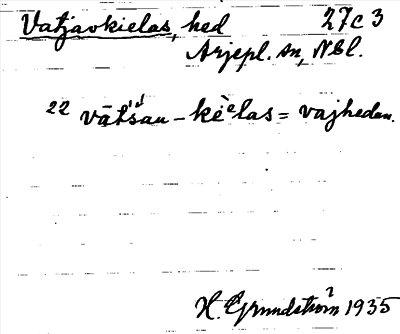 Vatjavkielas, hed 27c3
Arjepl. sn, NBl.
22 vāt́s̀au - kèᵉlas = vajhedan.
H. Grundström 1935